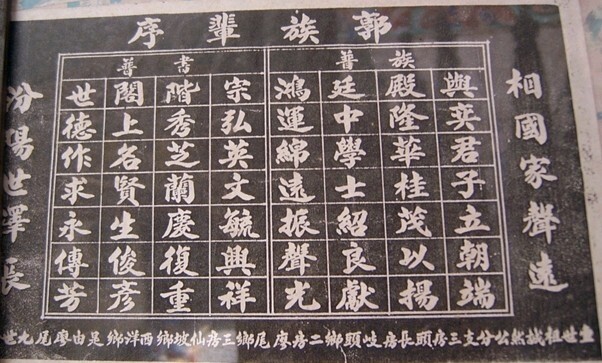 郭族輩序
相國家聲遠
族普
與奕君子立朝端
殿隆華桂茂以揚
廷中學士紹良獻
鴻運綿遠振聲光
書普
宗弘英文毓興祥
階秀芝蘭慶復重
閣上名賢生俊彥
世德作求永傳芳
汾陽世澤長
壹世祖誠然公分支三房頭長房岐頭鄉二房廖尾鄉三房仙坡鄉西洋鄉是由廖尾九世